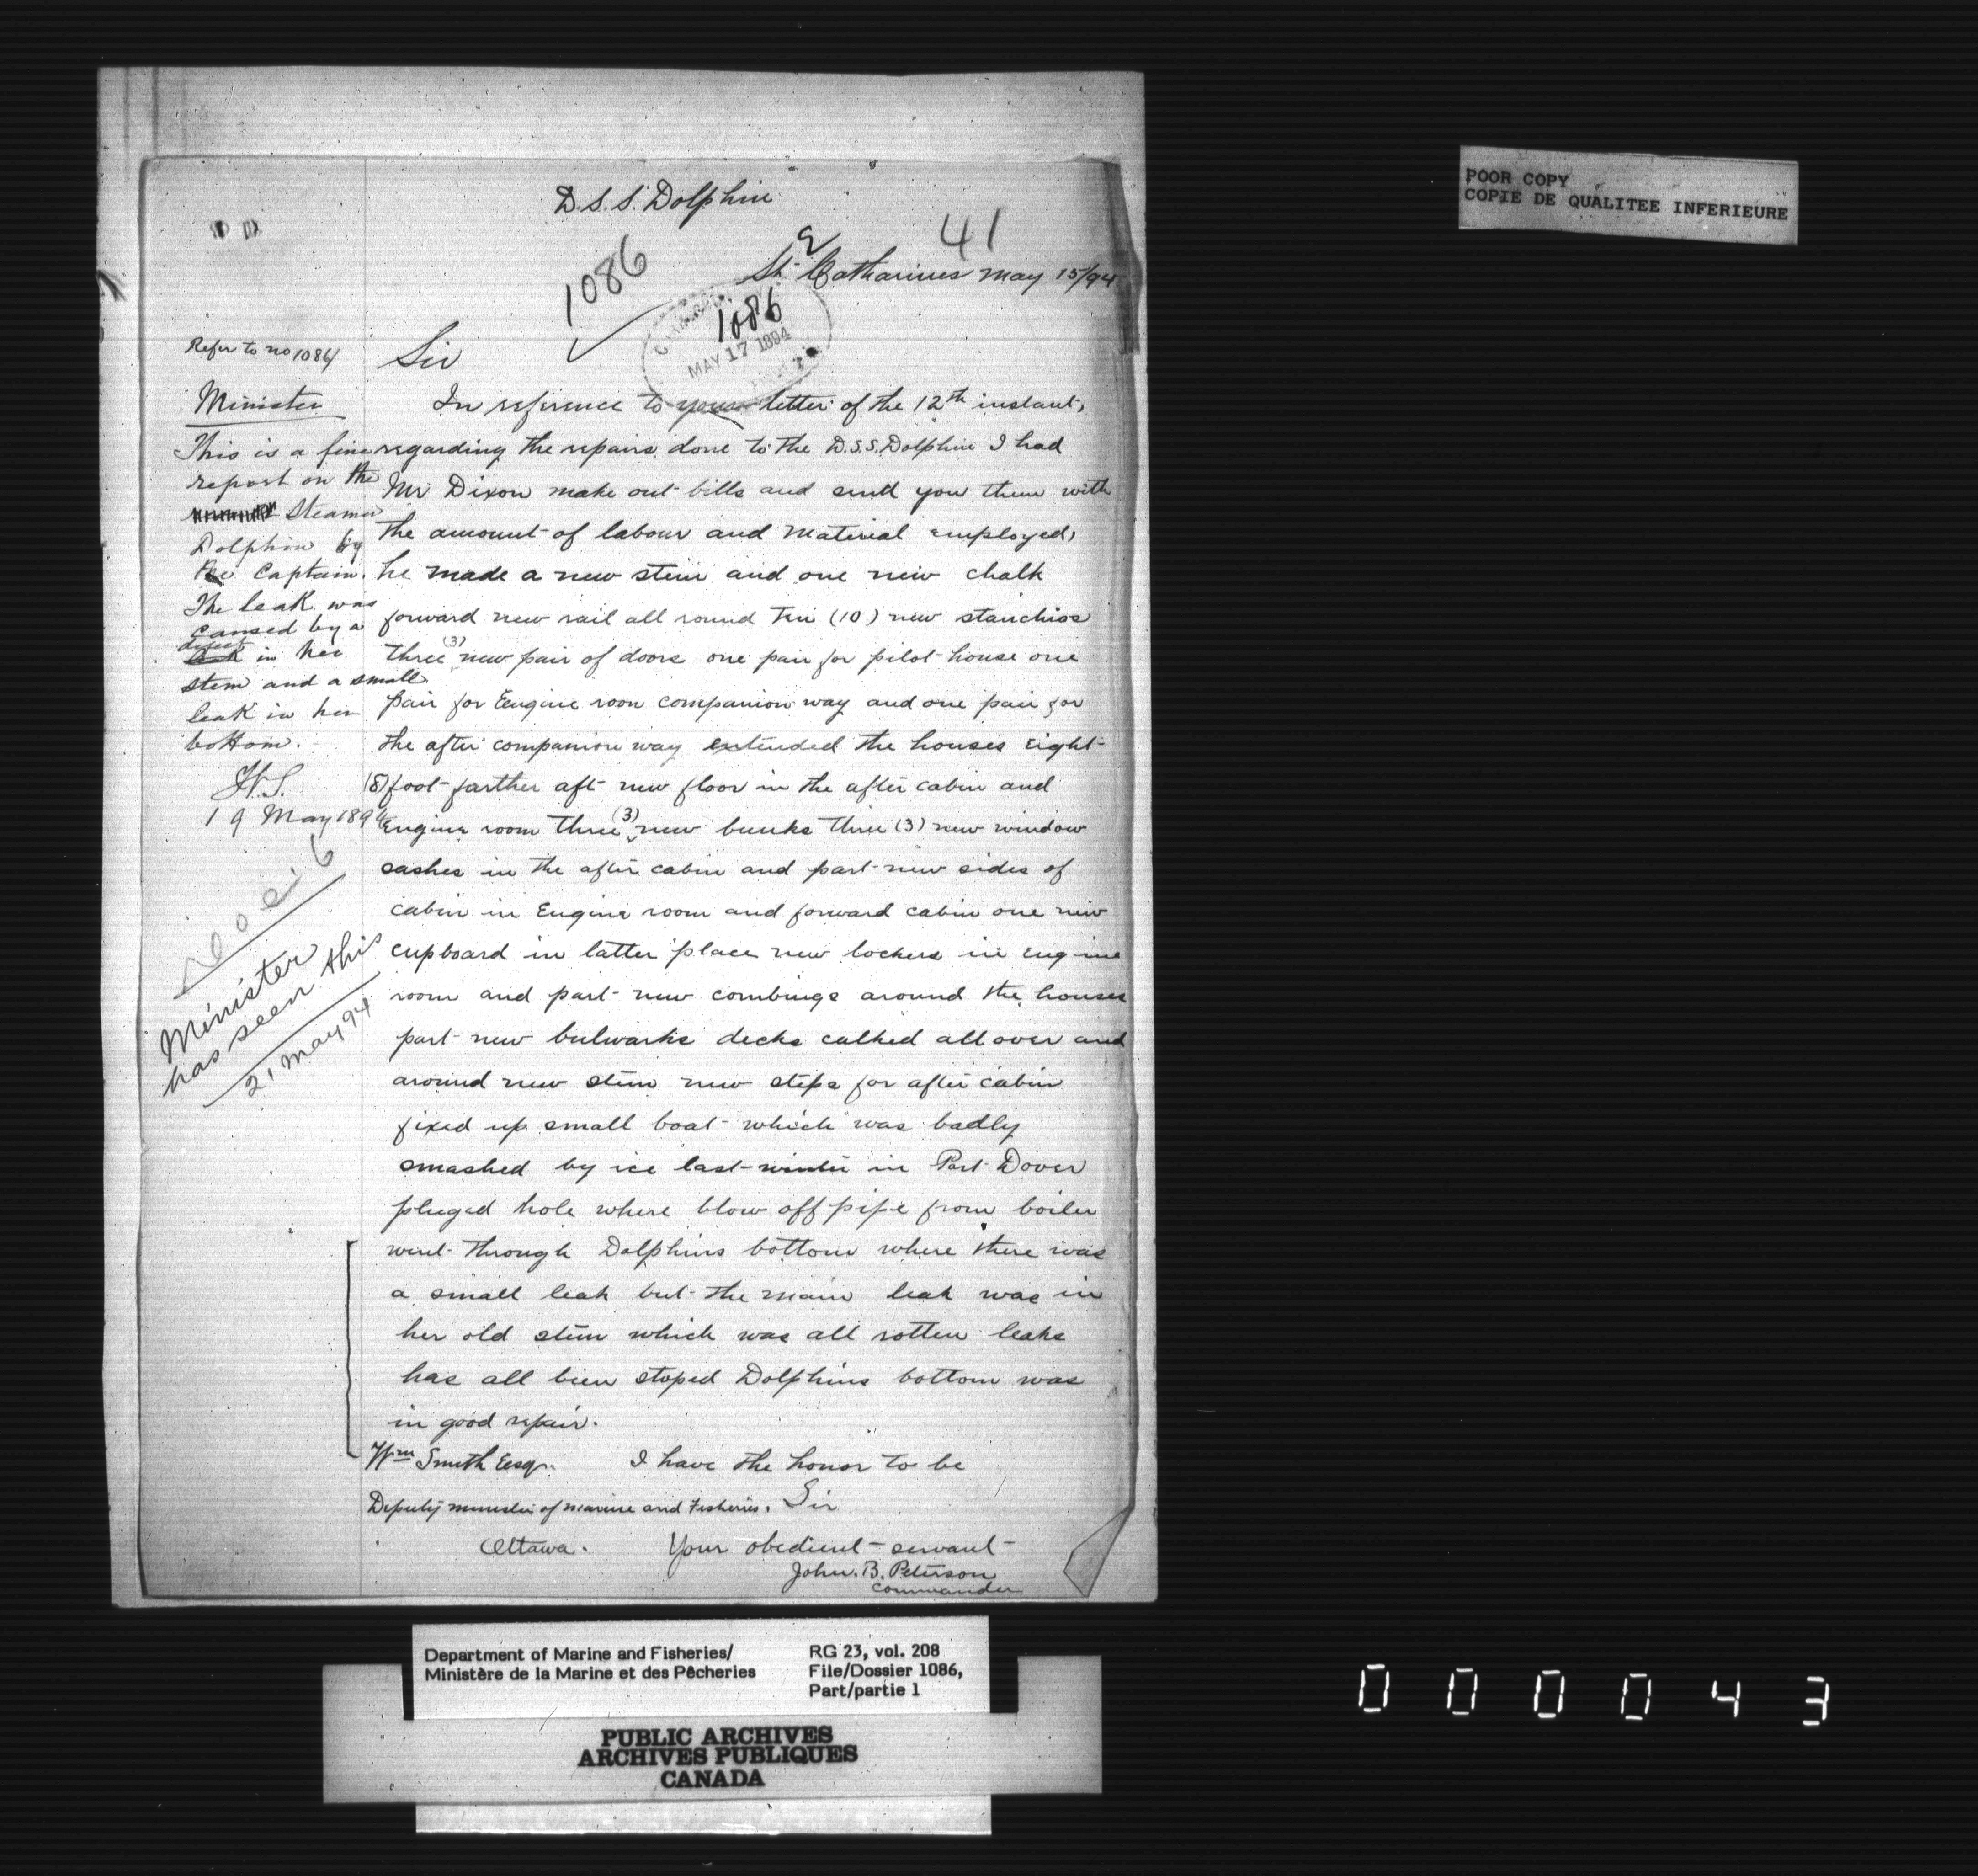 D.S.S. Dolphin
41
1086
St Catharines May 15/94
1086
MAY 17 1894
Refer to no 1086
Sir
In reference to your letter of the 12th instant,
regarding the repairs done to the D.S.S. Dolphin I had
Mr Dixon make out bills and send you them with
the amount of labour and material employed,
he made a new stem and one new chalk
forward new rail all round Ten (10) new stanchios
three (3) new pair of doors one pair for pilot house one
pair for Eengine room companion way and one pair for
the after companion way extended the houses eight
(8) foot farther aft new floor in the after cabin and
engine room three (3) new bunks three (3) new window
sashes in the after cabin and part new sides of
cabin in Engine room and forward cabin one new
cupboard in latter place new lockers in engine
room and part new combings around the houses
part new bulwarks decks calked all over and
around new stem new steps for after cabin
fixed up small boat which was badly
smashed by ice last winter in Port Dover
pluged hole where blow off pipe from boiler
went through Dolphins bottom where there was
a small leak but the main leak was in
her old stem which was all rotten leaks
has all been stoped Dolphins bottom was
in good repair.
Wm Smith Esqr.
I have the honor to be
Deputy minister of marine and Fisheries.
Sir
Ottawa.
Your obedient servant
John. B. Peterson
Commander
Minister
This is a fine
report on the
Steamer
Dolphin by
the Captain.
The leak was
caused by a
defect in her
stem and a small
leak in her
bottom.
W.S.
19 May 1894
Minister
has seen this
21 May 94
POOR COPY
COPIE DE QUALITEE INFERIEURE
Department of Marine and Fisheries/
Ministère de la Marine et des Pêcheries
RG 23, vol. 208
File/Dossier 1086,
Part/partie 1
PUBLIC ARCHIVES
ARCHIVES PUBLIQUES
CANADA
000043